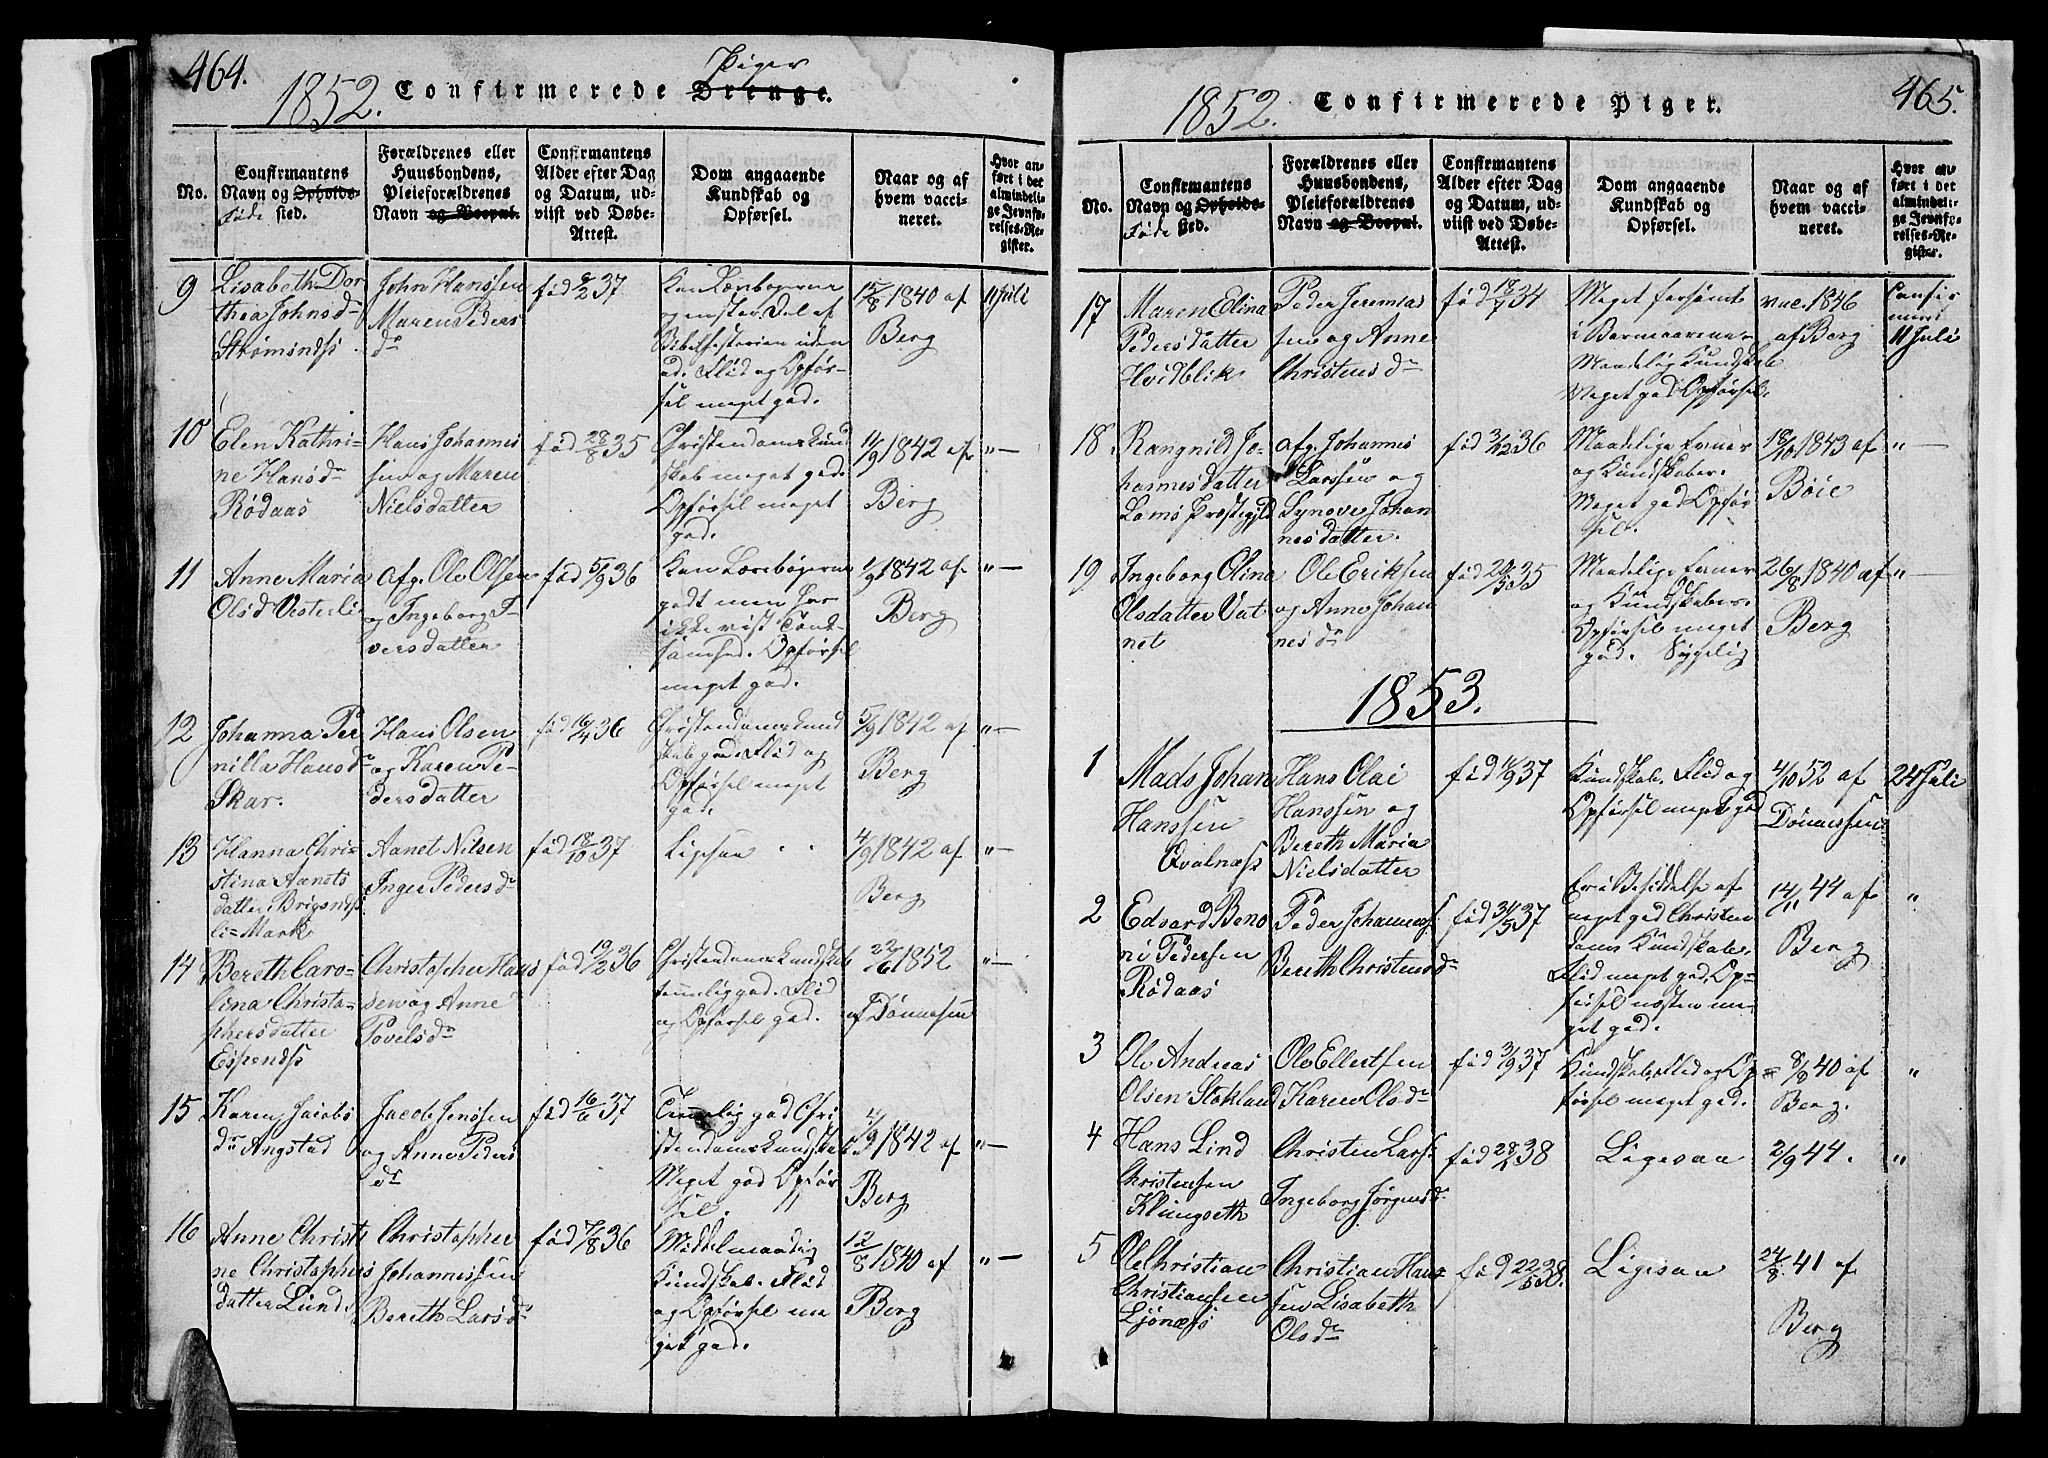 464.
1852. Confirmerede Drenge. Piger
No.
Confirmantens
Navn og Opholds-
Føde sted.
Forældrenes eller
Huusbondens,
Pleieforældrenes
Navn og Boepæl.
Confirmantens
Alder efter Dag
og Datum, ud-
viist ved Døbe-
Attest.
Dom angaaende
Kundskab og
Opførsel.
Naar og af
hvem vacci-
neret.
Hvor an-
ført i det
almindeli-
ge Jevnfø-
relses-Re-
gister.
9
Lisabeth Dor
thea Johnsd
Strømsnds
John Hanssen
Maren Peders
dr
fød 9/2 37
Kan Lærebøgerne
og enster Del af
Bibelhistorien uden
ad. Flid og Opfør-
sel meget god.
15/8 1840 af
Berg
11 Juli
10
Elen Kathri-
ne Hansdr
Rødaas
Hans Johannes
sen og Maren
Nielsdatter
fød 28/8 35
Christendomskund
skab meget god.
Opførsel meget
god.
11/9 1842 af
Berg
" —
11
Anne Maria
Olsd Vesterli
afg. Ole Olsen
og Ingeborg I-
versdatter
fød 5/9 36
Kan Lærebøgerne
godt men har
ikke vist Tænk-
somhed. Opførsel
meget god.
1/9 1842 af
Berg
" —
12
Johanna Per
nilla Hansdr
Skar.
Hans Olsen
og Karen Pe-
dersdatter
fød 16/4 36
Christendomskund
skab god. Flid og
Opførsel meget
god.
5/9 1842 af
Berg
" —
13
Hanna Chri-
stina Aanets
datter Brigsnds
li=Mark
Aanet Nilsen
Inger Pedersdr
fød 18/10 37
Ligesaa
4/9 1842 af
Berg
" —
14
Bereth Caro-
lina Christo-
phersdatter
Espends
Christopher Hans
sen og Anne
Povelsdr
fød 19/2 36
Christendomskundskab
temmelig god. Flid
og Opførsel god.
22/6 1852
af Dønnesen
" —
15
Karen Jacobs
dr Angstad
Jacob Jenssen
og Anne Peders
dr
fød 16/6 37
Temmelig god Chri
stendomskundskab
Meget god Opfør
sel.
4/9 1842 af
Berg
" —
16
Anne Christi
ne Christophers
datter Lund
Christopher
Johannessen
Bereth Larsdr
fød 7/8 36
Middelmaadig
Kundskab. Flid
og Opførsel me
get god.
12/8 1840 af
Berg
" —
465.
1852. Confirmerede Piger.
No.
Confirmantens
Navn og Opholds-
Føde sted.
Forældrenes eller
Huusbondens,
Pleieforældrenes
Navn og Boepæl.
Confirmantens
Alder efter Dag
og Datum, ud-
viist ved Døbe-
Attest.
Dom angaaende
Kundskab og
Opførsel.
Naar og af
hvem vacci-
neret.
Hvor an-
ført i det
almindeli-
ge Jevnfø-
relses-Re-
gister.
17
Maren Elina
Pedersdatter
Hvidblik
Peder Jeremias
sen og Anne
Christensdr
fød 18/7 34
Meget forsømt
i Barneaarene
Maadelig Kundskab
Meget god Opførsel.
vac. 1846
af Berg
Confir
meret
11 Juli
18
Rangnild Jo-
hannesdatter
Loms Præstegjld
afg. Johannes
Larssen og
Synøve Johan
nesdatter.
fød 3/12 36
Maadelige Evner
og Kundskaber.
Meget god Opfør
sel.
18/10 1843 af
Bøie
" —
19
Ingeborg Olina
Olsdatter Vat
net
Ole Eriksen
og Anne Johan
nesdr
fød 20/10 35
Maadelige Evner
og Kundskaber.
Opførsel meget
god. Sygelig
26/8 1840 af
Berg
" —
1853.
1
Mads Johan
Hanssen
Qvalnæss
Hans Olai
Hanssen og
Bereth Maria
Nielsdatter
fød 11/9 37
Kundskab. Flid og
Opførsel meget god
4/10 52 af
Dønnessen
24 Juli
2
Edvard Beno
ni Pedersen
Rødaas
Peder Johanness.
Bereth Christensdr
fød 31/5 37
Er i Besiddelse af
meget god Christen
doms Kundskaber.
Flid meget god, Op-
førsel næsten me-
get god.
14/11 44 af
Berg
"
3
Ole Andreas
Olsen Stokland
Ole Ellertsen
Karen Olsdr
fød 3/9 37
Kundskab, Flid og Op=
førsel meget god.
8/8 40 af
Berg.
"
4
Hans Lind
Christensen
Klungseth
Christen Larss.
Ingeborg Jørgensdr
fød 28/1 38
Ligesaa
2/9 44.
"
5
Ole Christian
Christiansen
Ljønæss
Christian Hans
sen Lisabeth
Olsdr
fød 22/5 38.
Ligesaa
24/8 41 af
Berg